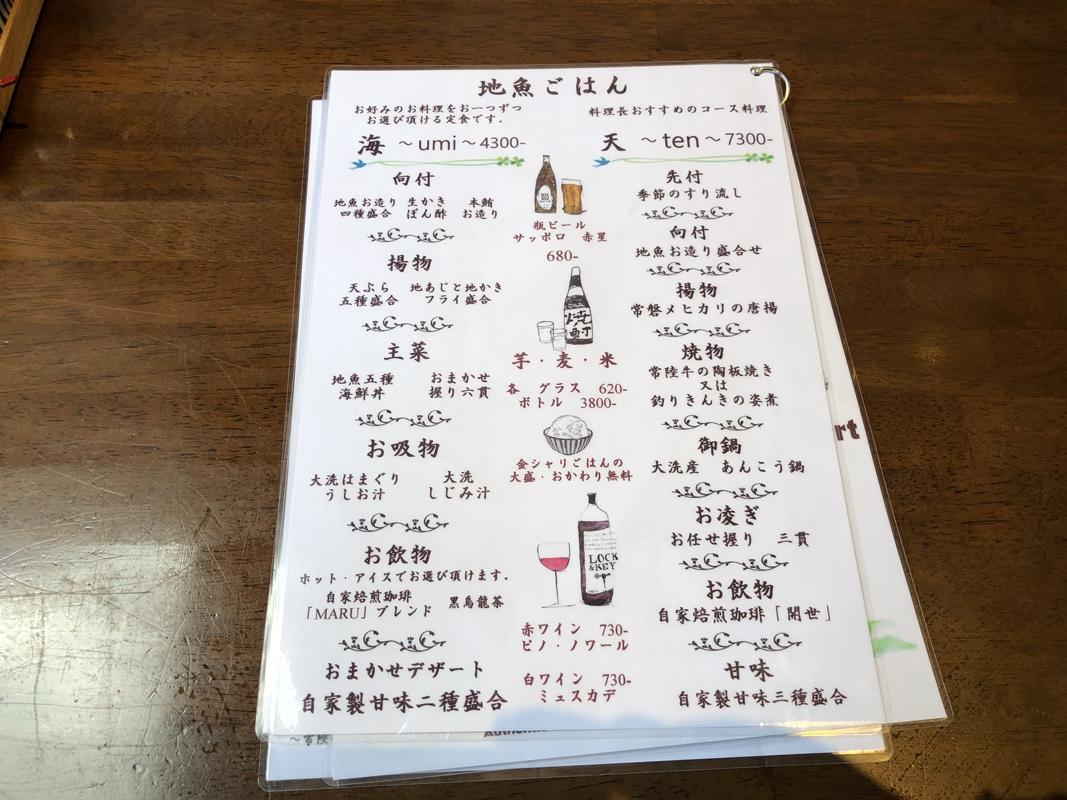 地魚ごはん
お好みのお料理をお一つずつ
お選び頂ける定食です．
海 ～umi～4300-
向付
地魚お造り 生かき 本鮪
四種盛合 ぽん酢 お造り
揚物
天ぷら 地あじと地かき
五種盛合 フライ盛合
主菜
地魚五種 おまかせ
海鮮丼 握り六貫
お吸物
大洗はまぐり 大洗
うしお汁 しじみ汁
お飲物
ホット・アイスでお選び頂けます．
自家焙煎珈琲 黒烏龍茶
「MARU」ブレンド
おまかせデザート
自家製甘味二種盛合
瓶ビール
サッポロ 赤星
680-
焼酎
芋・麦・米
各 グラス 620-
ボトル 3800-
金シャリごはんの
大盛・おかわり無料
LOCK
&KEY
赤ワイン 730-
ピノ・ノワール
白ワイン 730-
ミュスカデ
料理長おすすめのコース料理
天 ～ten～7300-
先付
季節のすり流し
向付
地魚お造り盛合せ
揚物
常磐メヒカリの唐揚
焼物
常陸牛の陶板焼き
又は
釣りきんきの姿煮
御鍋
大洗産 あんこう鍋
お凌ぎ
お任せ握り 三貫
お飲物
自家焙煎珈琲「開世」
甘味
自家製甘味三種盛合
rt
～常陸